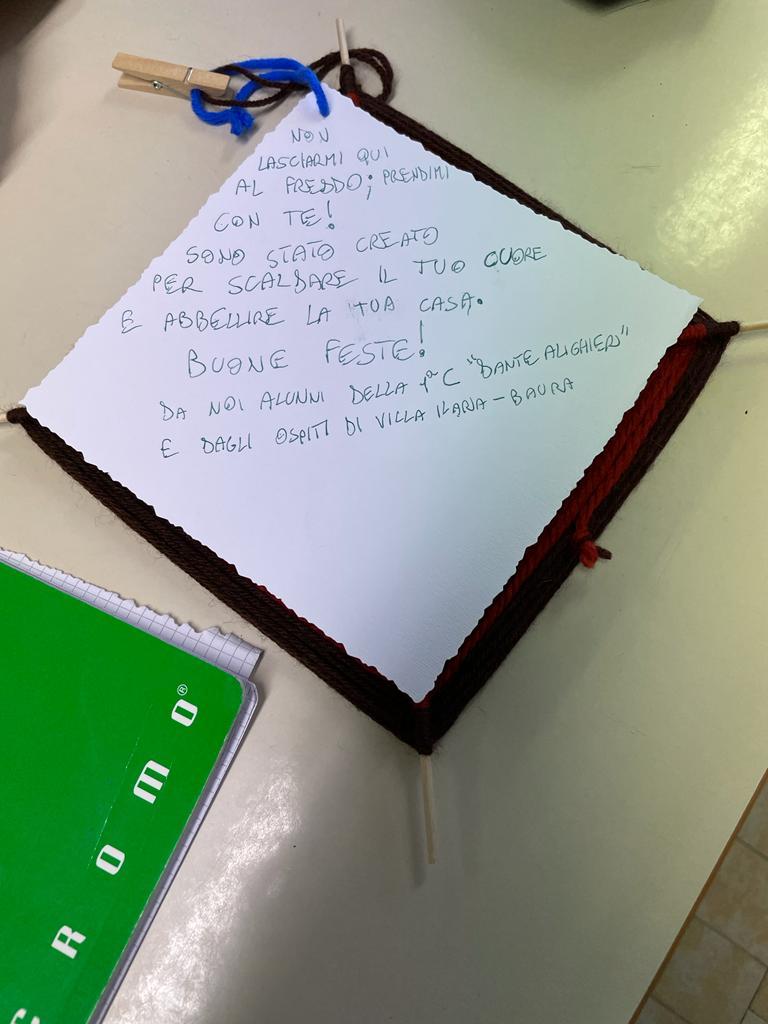 NON
LASCIARMI QUI
AL FREDDO; PRENDIMI
CON TE!
SONO STATO CREATO
PER SCALDARE IL TUO CUORE
E ABBELLIRE LA TUA CASA.
BUONE FESTE!
DA NOI ALUNNI DELLA 1ª C "DANTE ALIGHIERI"
E DAGLI OSPITI DI VILLA ILARIA - BAURA
CROMO®